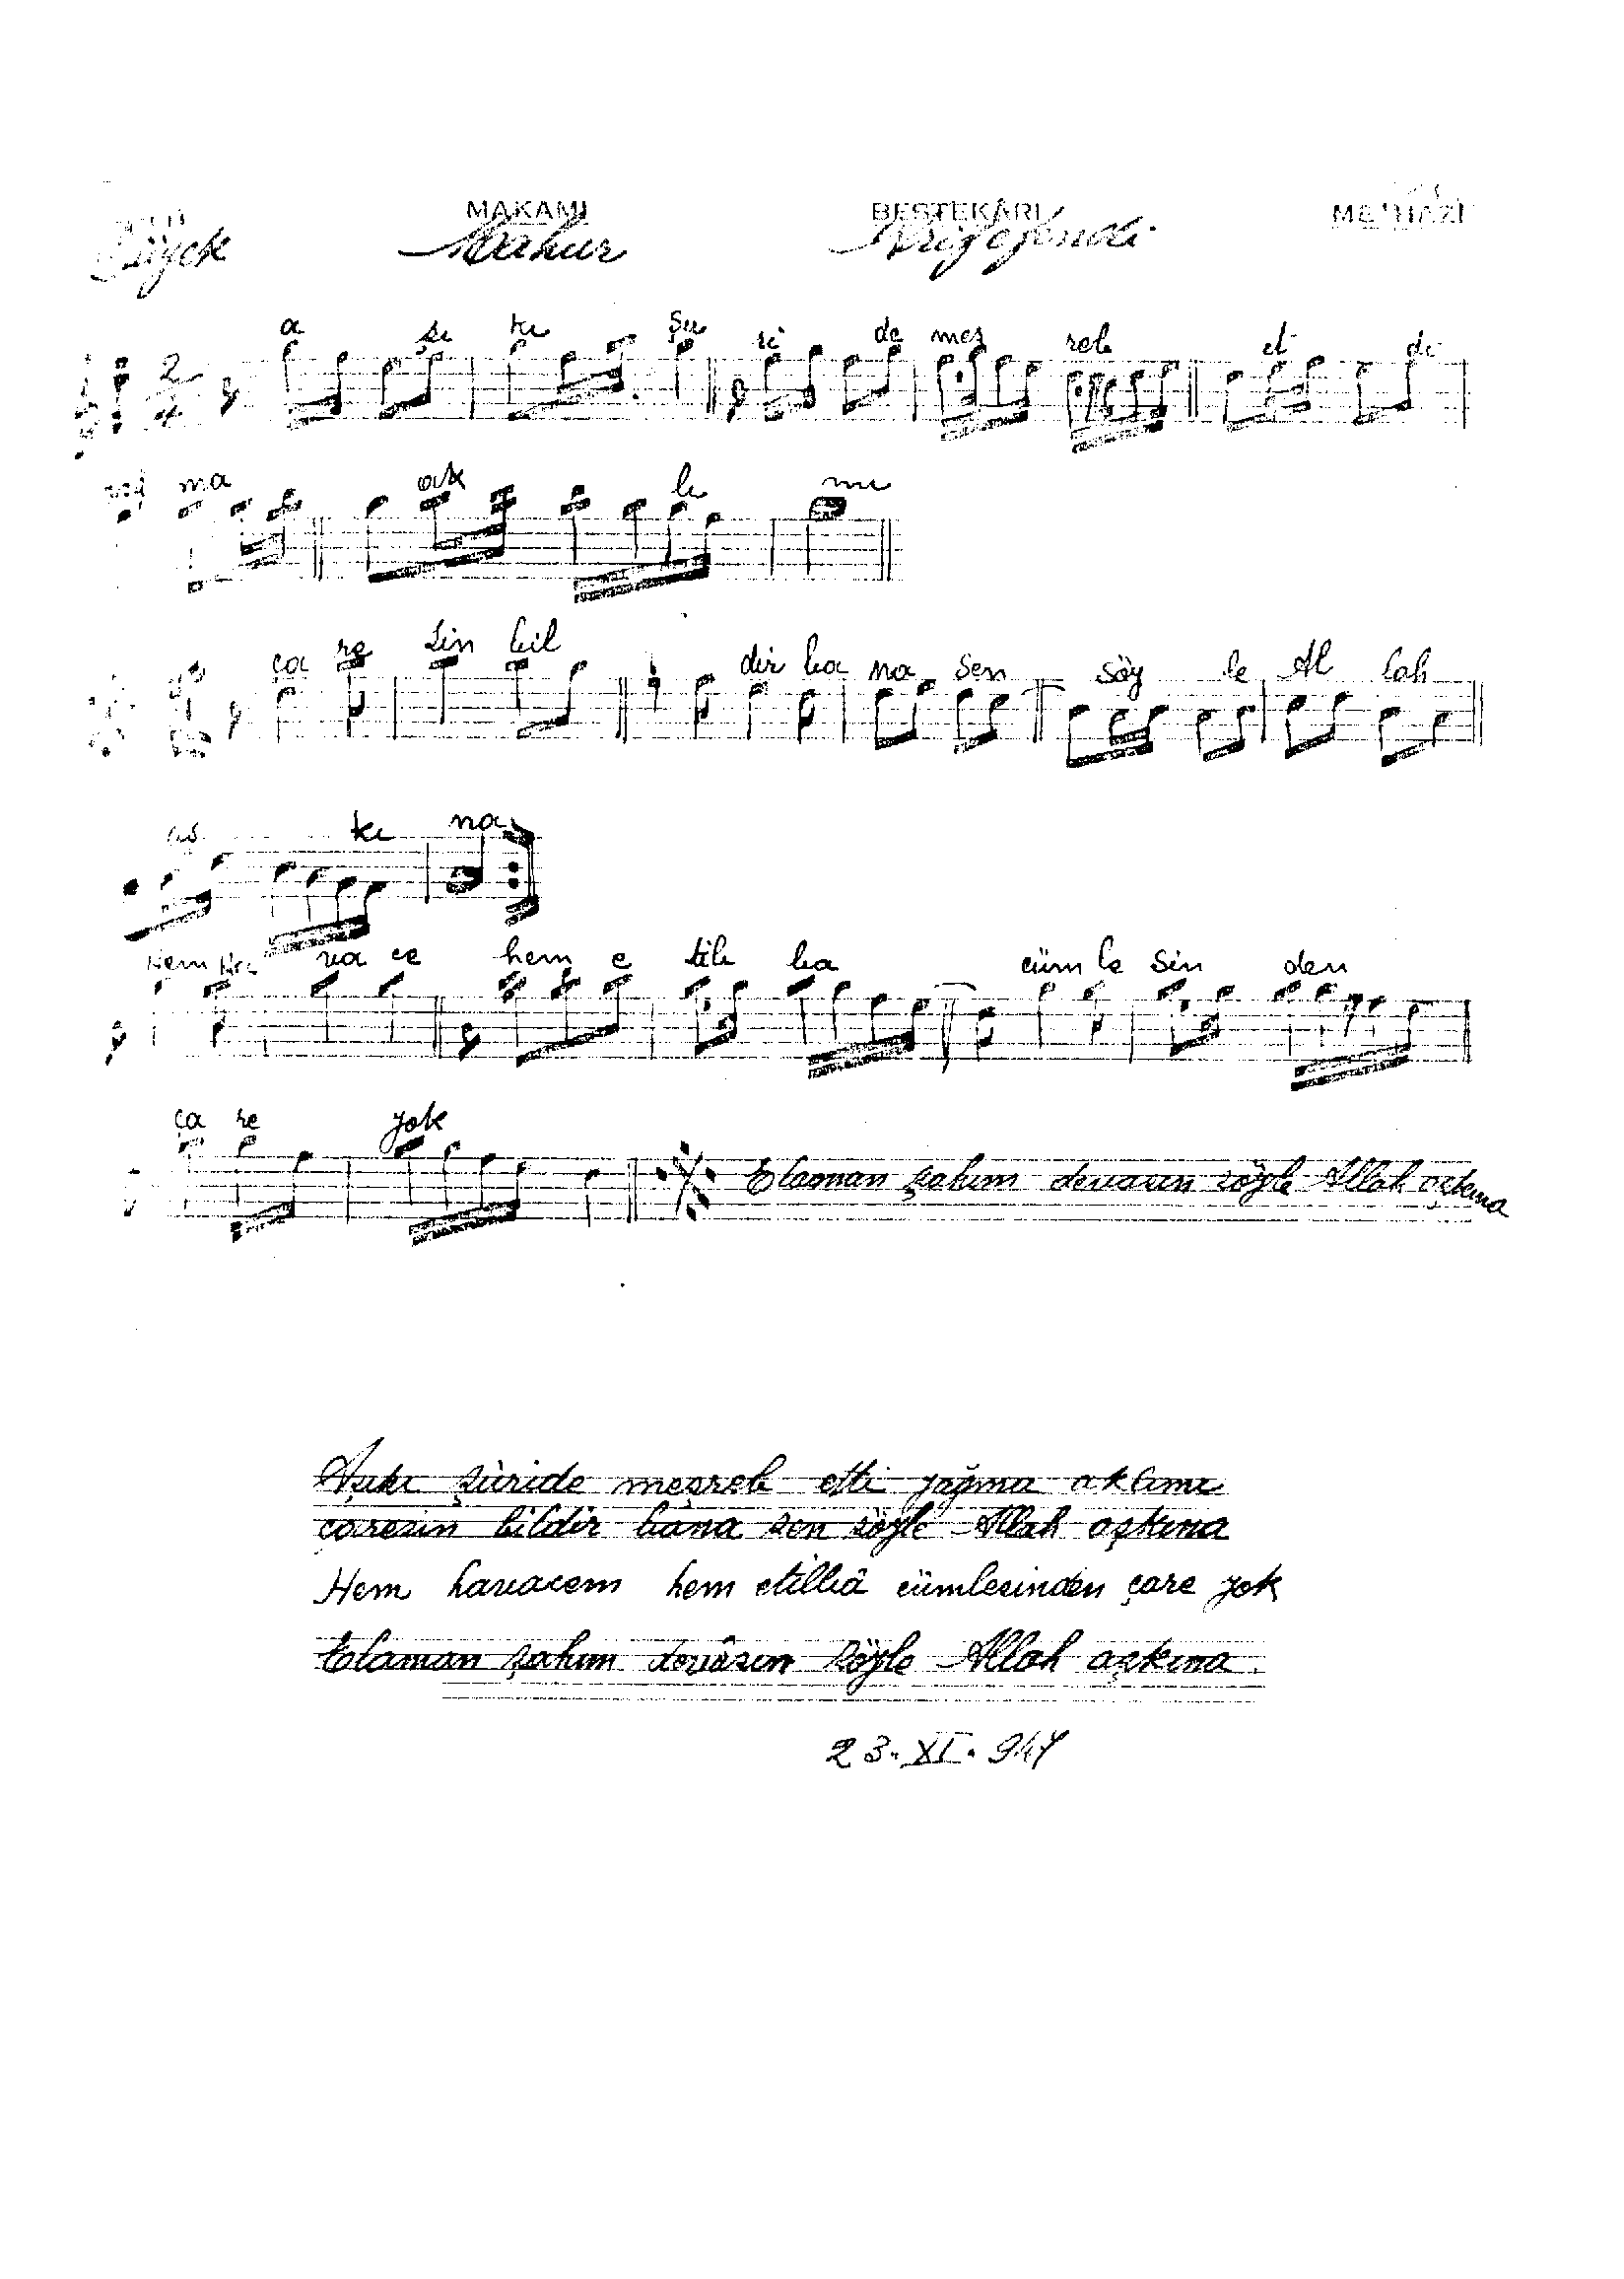 MAKAMI BESTEKÂRI
Mahur Arif efendi
a şı kı Şu ri de meş reb et di
ma ak lı mı
ça re Sin bil dir ba na Sen Söy le Al lah
aş kı na
Hem va ce hem e tib ba cüm le Sin den
ça re yok
Elaman şahım devasın söyle Allah aşkına
Aşkı şùride meşreb etti yağma aklımı
çaresin bildir bana sen söyle Allah aşkına
Hem havacem hem etibbâ cümlesinden çare yok
Elaman şahım devâsın söyle Allah aşkına.
23.XI.947